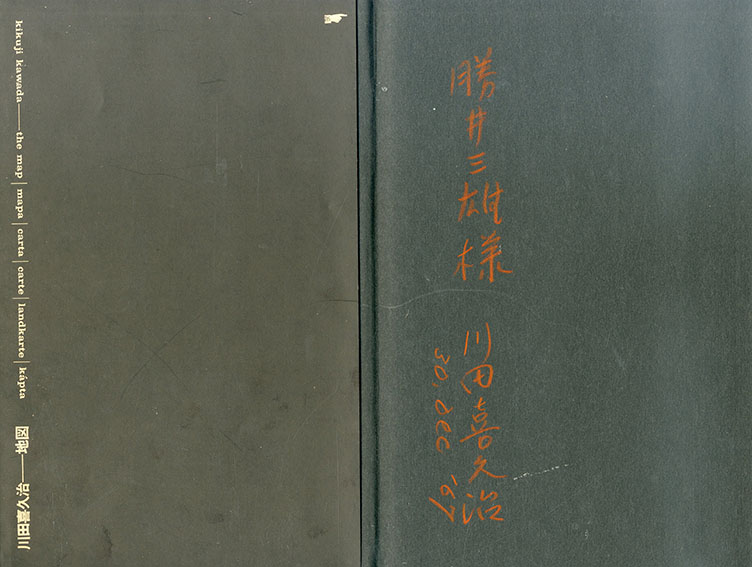 kikuji kawada——the map | mapa | carta | carte | landkarte | kápta
川田喜久治——地図
勝井三雄様
川田喜久治
30. DEC